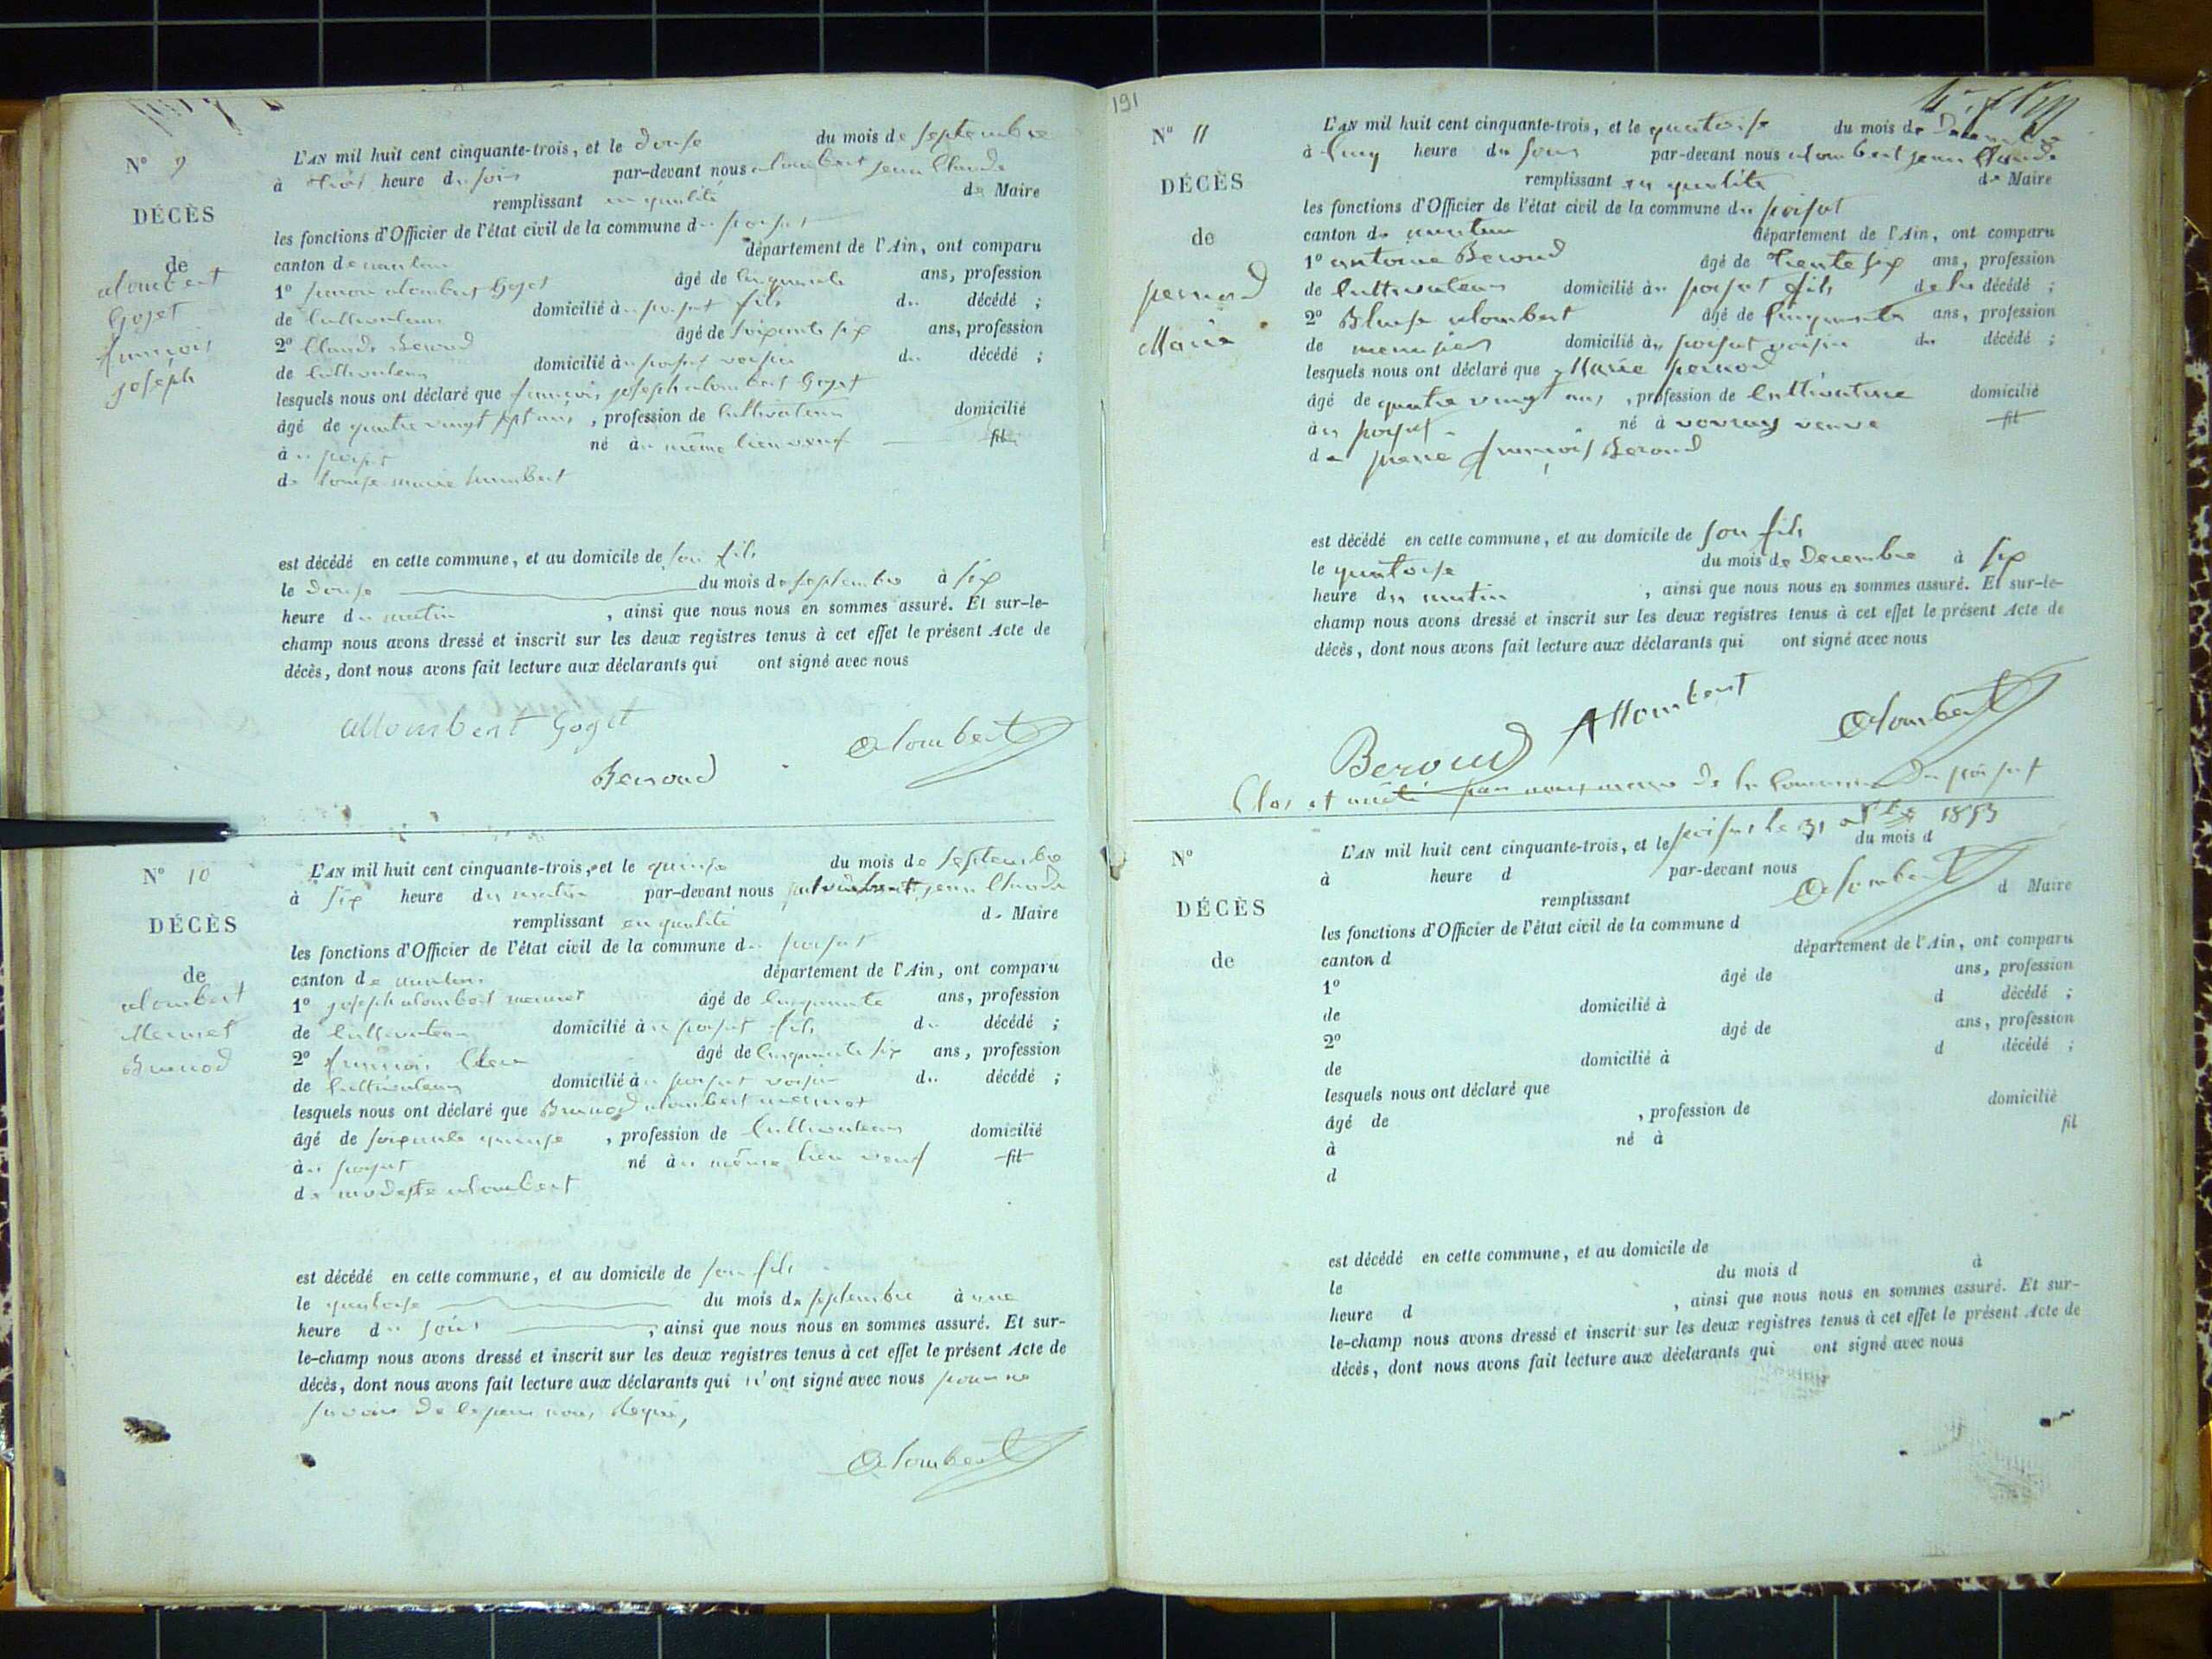 N° 9
DÉCÈS
de
alombert
Goget
francois
joseph
L'AN mil huit cent cinquante-trois, et le douse du mois de septembre
à trois heure du soir par-devant nous alombert jean Claude
remplissant en qualité de Maire
les fonctions d'Officier de l'état civil de la commune du poisat
canton de nantua département de l'Ain, ont comparu
1° alombert Goget âgé de cinquante ans, profession
de cultivateur domicilié au poisat fils du décédé ;
2° Claude Beroud âgé de soixante six ans, profession
de cultivateur domicilié au poisat voisin du décédé ;
lesquels nous ont déclaré que francois joseph alombert Goget
âgé de quatre vingt sept ans, profession de cultivateur domicilié
au poisat né au même lieu veuf fil
de louise marie humbert
est décédé en cette commune, et au domicile de son fils
le douse du mois de septembre à six
heure du matin, ainsi que nous nous en sommes assuré. Et sur-le-
champ nous avons dressé et inscrit sur les deux registres tenus à cet effet le présent Acte de
décès, dont nous avons fait lecture aux déclarants qui ont signé avec nous
Allombert Goget
Beroud
Alombert
N° 10
DÉCÈS
de
alombert
Mermet
Brunod
L'AN mil huit cent cinquante-trois, et le quinse du mois de septembre
à six heure du matin par-devant nous jean Claude
remplissant en qualité de Maire
les fonctions d'Officier de l'état civil de la commune du poisat
canton de nantua département de l'Ain, ont comparu
1° joseph alombert mermet âgé de cinquante ans, profession
de cultivateur domicilié au poisat fils du décédé ;
2° francois âgé de cinquante six ans, profession
de cultivateur domicilié au poisat voisin du décédé ;
lesquels nous ont déclaré que Brunod alombert mermet
âgé de soixante quinse, profession de cultivateur domicilié
au poisat né au même lieu veuf fil
de modeste alombert
est décédé en cette commune, et au domicile de son fils
le quatorse du mois de septembre à une
heure du soir, ainsi que nous nous en sommes assuré. Et sur-
le-champ nous avons dressé et inscrit sur les deux registres tenus à cet effet le présent Acte de
décès, dont nous avons fait lecture aux déclarants qui n'ont signé avec nous pour ne
savoir de
Alombert
191
N° 11
DÉCÈS
de
pernod
Marie
L'AN mil huit cent cinquante-trois, et le quatorse du mois de Decembre
à cinq heure du soir par-devant nous alombert jean Claude
remplissant en qualité de Maire
les fonctions d'Officier de l'état civil de la commune du poisat
canton de nantua département de l'Ain, ont comparu
1° antoine Beroud âgé de trente six ans, profession
de cultivateur domicilié au poisat fils de la décédé ;
2° Blaise alombert âgé de cinquante ans, profession
de menusier domicilié au poisat voisin du décédé ;
lesquels nous ont déclaré que Marie pernod
âgé de quatre vingt ans, profession de cultivatrice domicilié
au poisat né à vovray veuve fil
de pierre francois Beroud
est décédé en cette commune, et au domicile de son fils
le quatorse du mois de Decembre à six
heure du matin, ainsi que nous nous en sommes assuré. Et sur-le-
champ nous avons dressé et inscrit sur les deux registres tenus à cet effet le présent Acte de
décès, dont nous avons fait lecture aux déclarants qui ont signé avec nous
Beroud
Allombert
Alombert
Clos et arrêté par nous maire de la Commune du poisat
poisat le 31 Xbre 1853
Alombert
N°
DÉCÈS
de
L'AN mil huit cent cinquante-trois, et le du mois d
à heure d par-devant nous
remplissant d Maire
les fonctions d'Officier de l'état civil de la commune d
canton d département de l'Ain, ont comparu
1° âgé de ans, profession
de domicilié à d décédé ;
2° âgé de ans, profession
de domicilié à d décédé ;
lesquels nous ont déclaré que
âgé de , profession de domicilié
à né à fil
d
est décédé en cette commune, et au domicile de
le du mois d à
heure d , ainsi que nous nous en sommes assuré. Et sur-
le-champ nous avons dressé et inscrit sur les deux registres tenus à cet effet le présent Acte de
décès, dont nous avons fait lecture aux déclarants qui ont signé avec nous